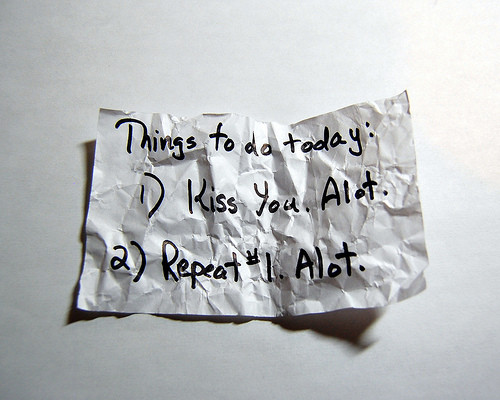 Things to do today:
1) Kiss You. Alot.
2) Repeat #1. Alot.